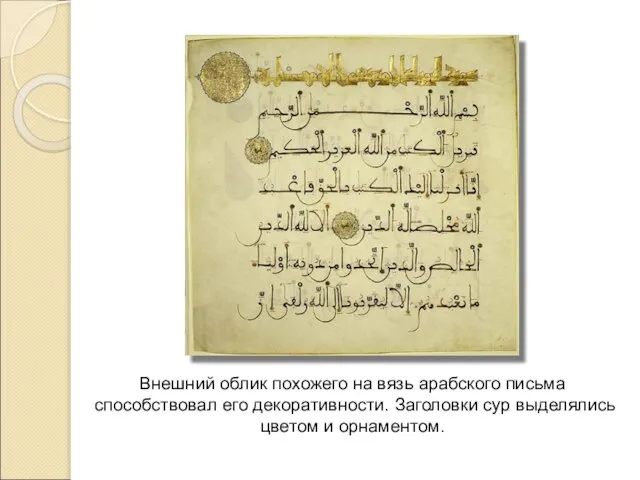 بسم الله الرحمن الرحيم
تنزيل الكتب من الله العزيز الحكيم
إنا أنزلنا إليك الكتب بالحق فاعبد
الله مخلصا له الدين ألا لله الدين
الخالص والذين اتخذوا من دونه أولياء
ما نعبدهم إلا ليقربونا إلى الله زلفى إن
Внешний облик похожего на вязь арабского письма
способствовал его декоративности. Заголовки сур выделялись
цветом и орнаментом.